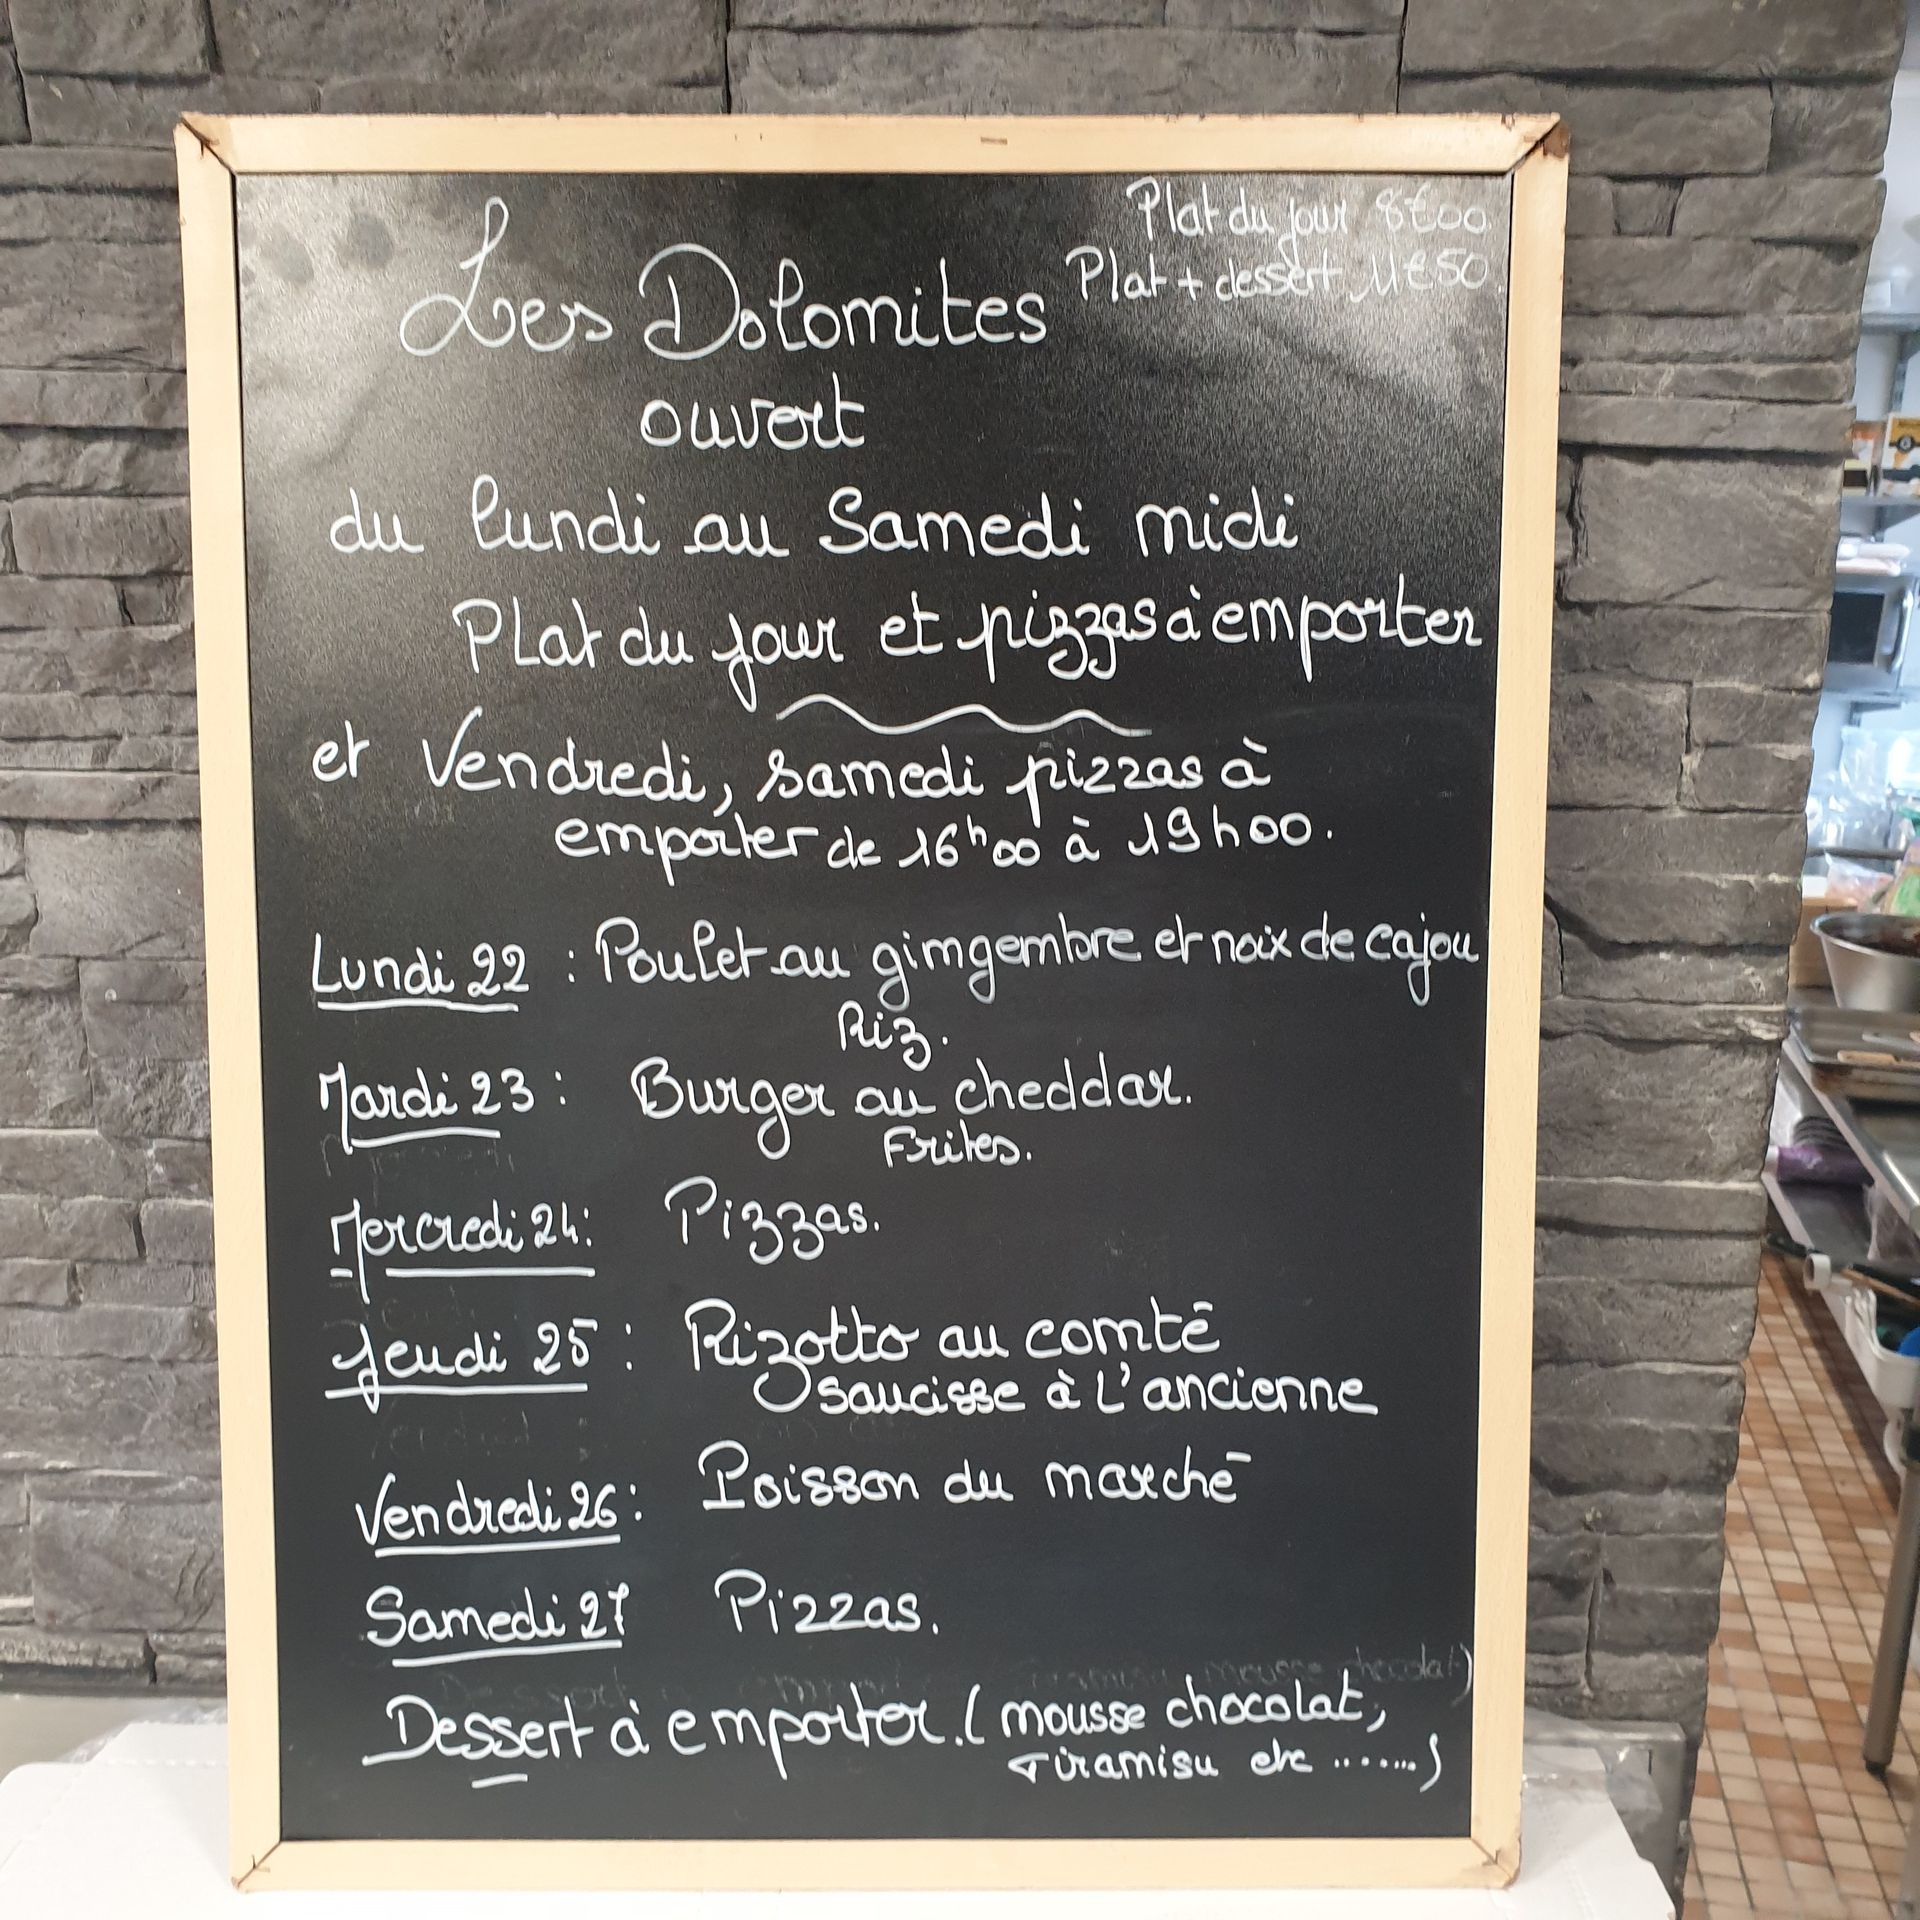 Plat du jour 8€00
Plat + dessert 11€50
Les Dolomites
ouvert
du lundi au Samedi midi
Plat du jour et pizzas à emporter
et Vendredi, samedi pizzas à
emporter de 16h00 à 19h00.
Lundi 22 : Poulet au gimgembre et noix de cajou
Riz.
Mardi 23 : Burger au cheddar.
Frites.
Mercredi 24 : Pizzas.
Jeudi 25 : Rizotto au comté
saucisse à L'ancienne
Vendredi 26 : Poisson du marché
Samedi 27 Pizzas.
mousse chocolat)
Dessert à emporter. ( mousse chocolat,
Tiramisu etc .......)